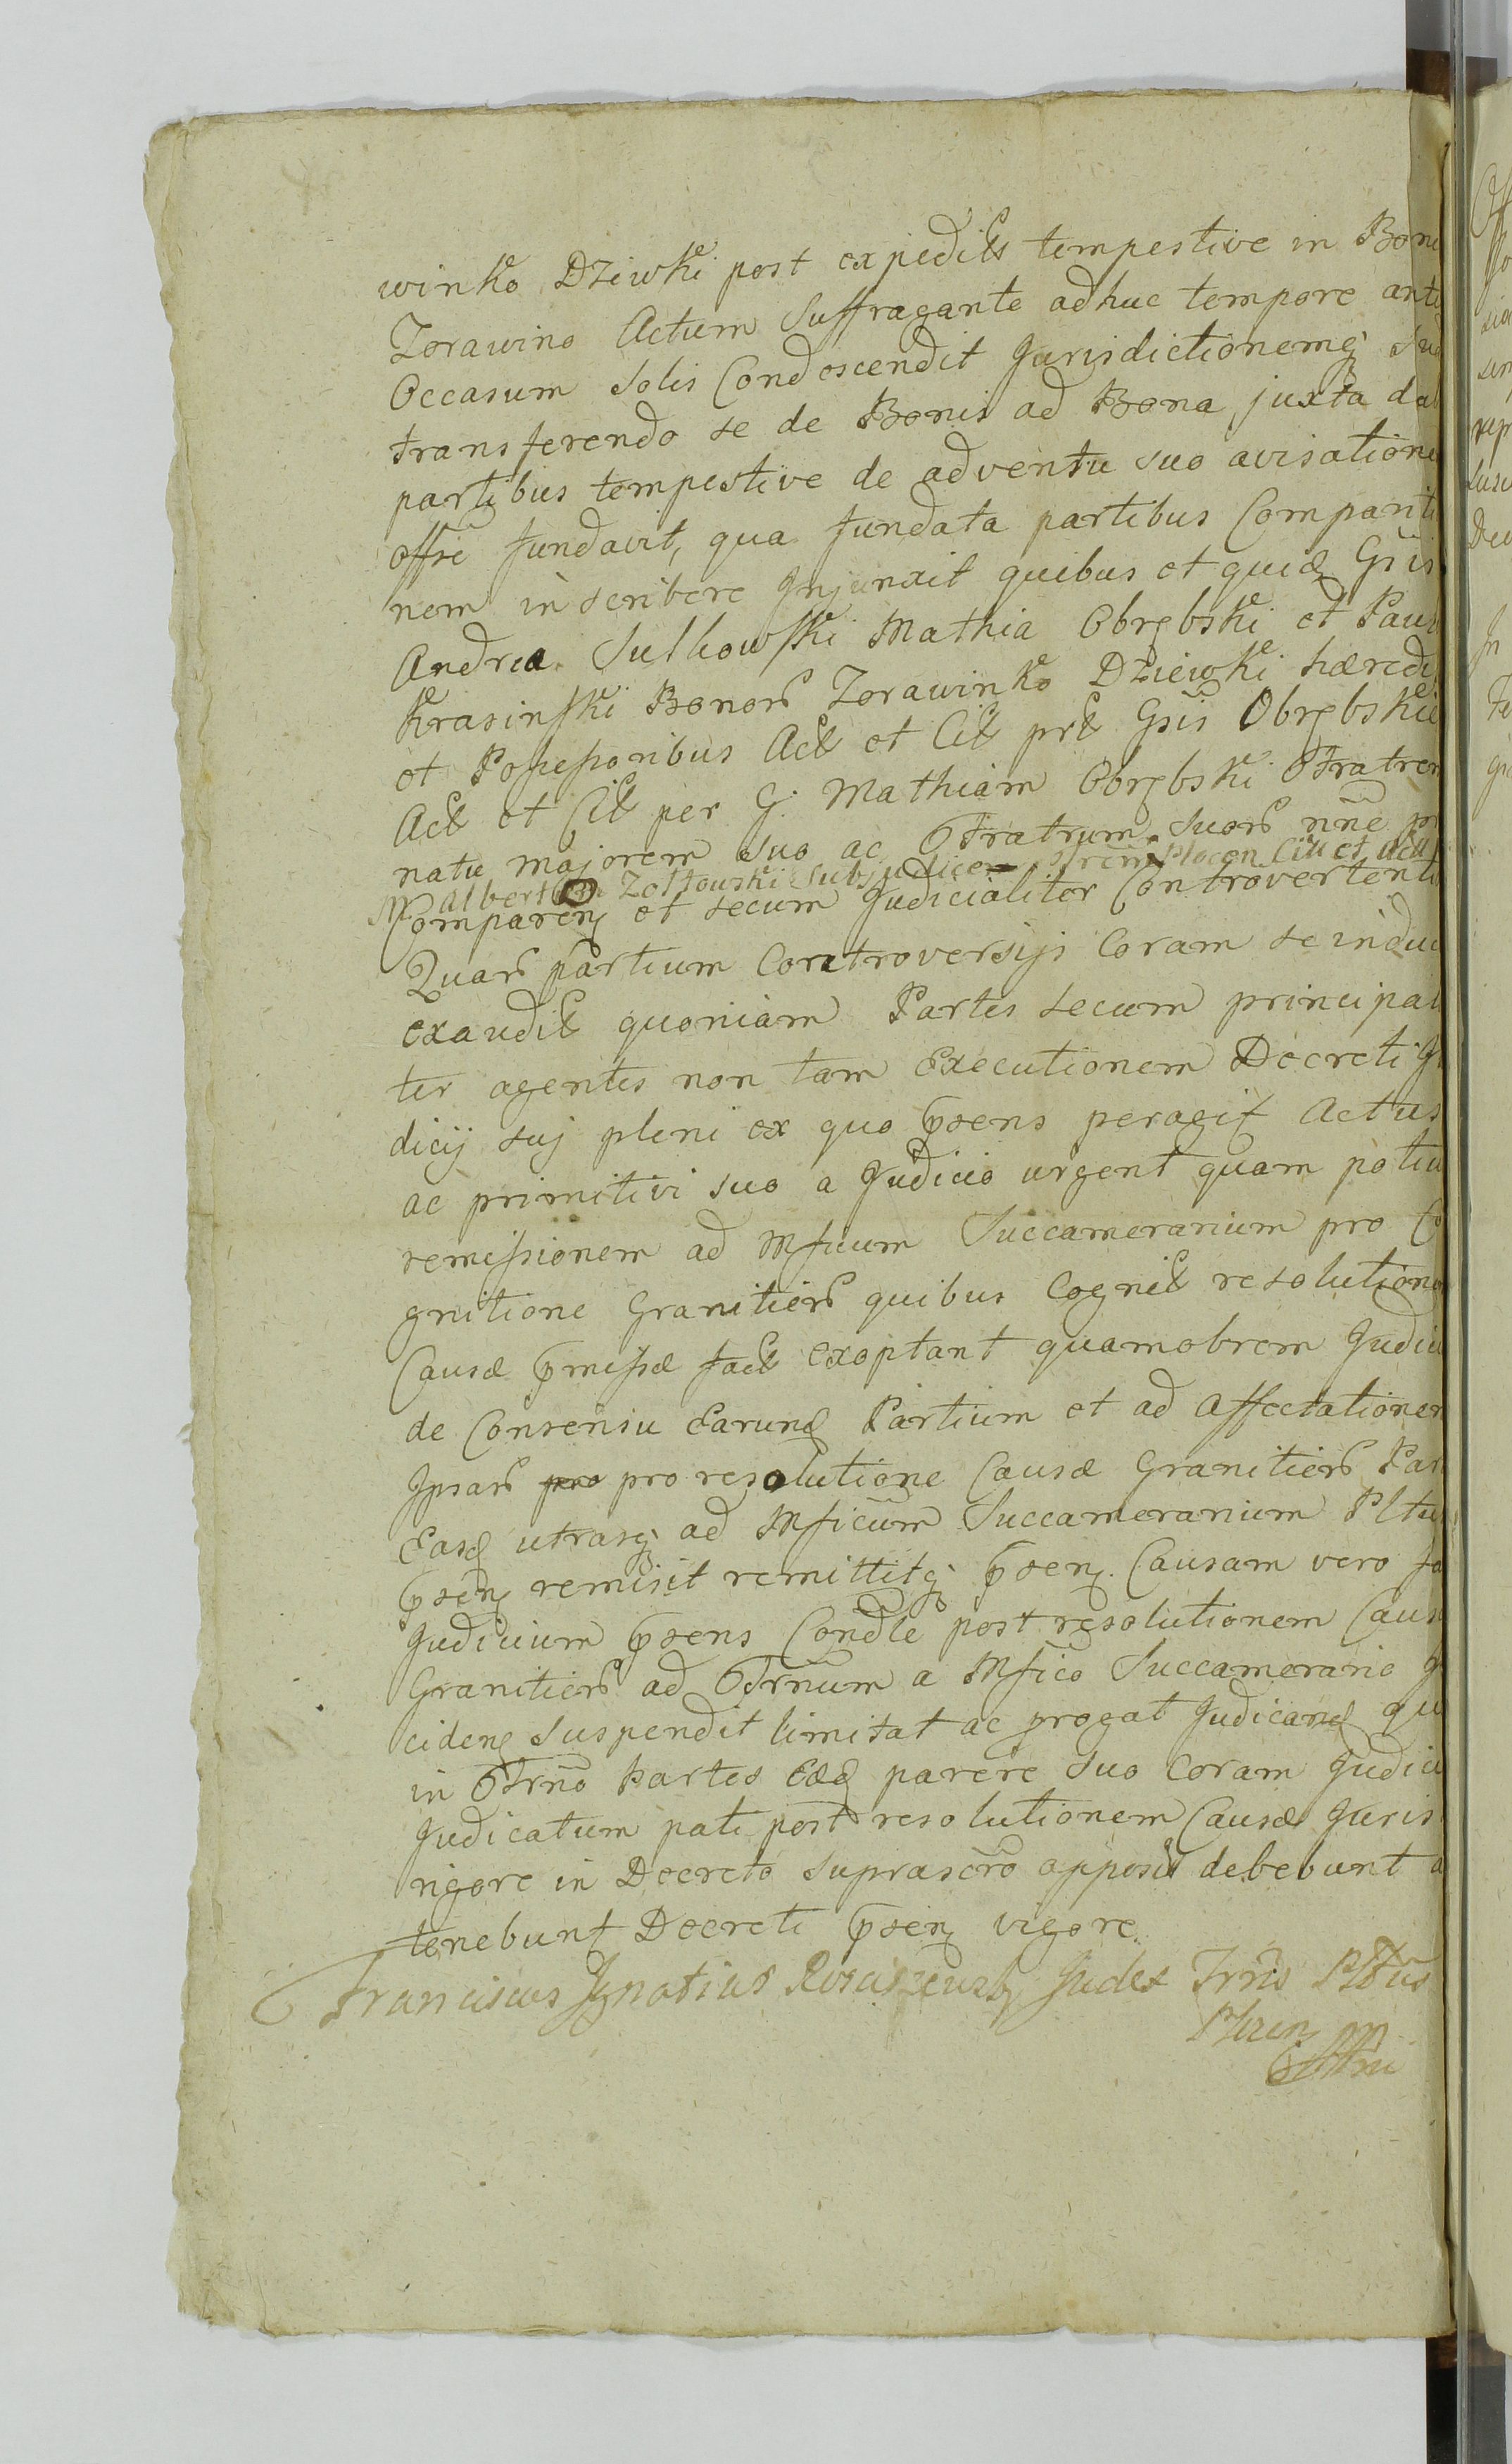 winko Dziwki post expedit tempestive in Bon
Zorawino Actum Suffragante adhuc tempore ante
Occasum Solis Condescendit Jurisdictionemq Su
transferendo se de Bonis ad Bona juxta da
partibus tempestive de adventu suo avisatione
offē fundavit, qua fundata partibus Compariti
nem inscribere Injunxit quibus et quid Gsis
Andrea Sulkowski Mathia Obrębski et Pau
Krasinski Bonor Zorawinko Dziewki hæredi
et Possessoribus Act et Cit prt Gsis Obrębski
Act et Cit per G. Mathiam Obrębski Fratrem
natu majorem suo ac Fratrum suor nñe
M Albert Zołtowski Subjudice Plocen Cit et Act
Comparen et secum Judicialiter Controvertenti
Quar partium Controversijs Coram se indu
exaudit quoniam Partes secum principal
ter agentes non tam Executionem Decreti Ju
dicij sui pleni ex quo psens peragit Actus
ac primitivi suo a Judicio urgent quam potiu
remissionem ad Mficum Succamerarium pro Co
gnitione Granitier quibus Cognit resolutione
Causæ pmissæ fact exoptant quamobrem Judici
de Consensu Earund Partium et ad Affectationem
Ipsar pro pro resolutione Causæ Granitier Par
Easd utrasq ad Mficum Succamerarium Pltus
psen remisit remittitq psen. Causam vero fa
Judicium psens Condle post resolutionem Caus
Granitier ad Trnum a Mfico Succamerario
ciden Suspendit limitat ac progat Judicand qu
in Trño Partes Eæd parere suo Coram Judici
Judicatum pati post resolutionem Causæ Juris
rigore in Decreto suprascro apposit debebunt a
tenebunt Decreti psen vigore
Franciscus Ignatius Judex Trris Pltus
Plocen